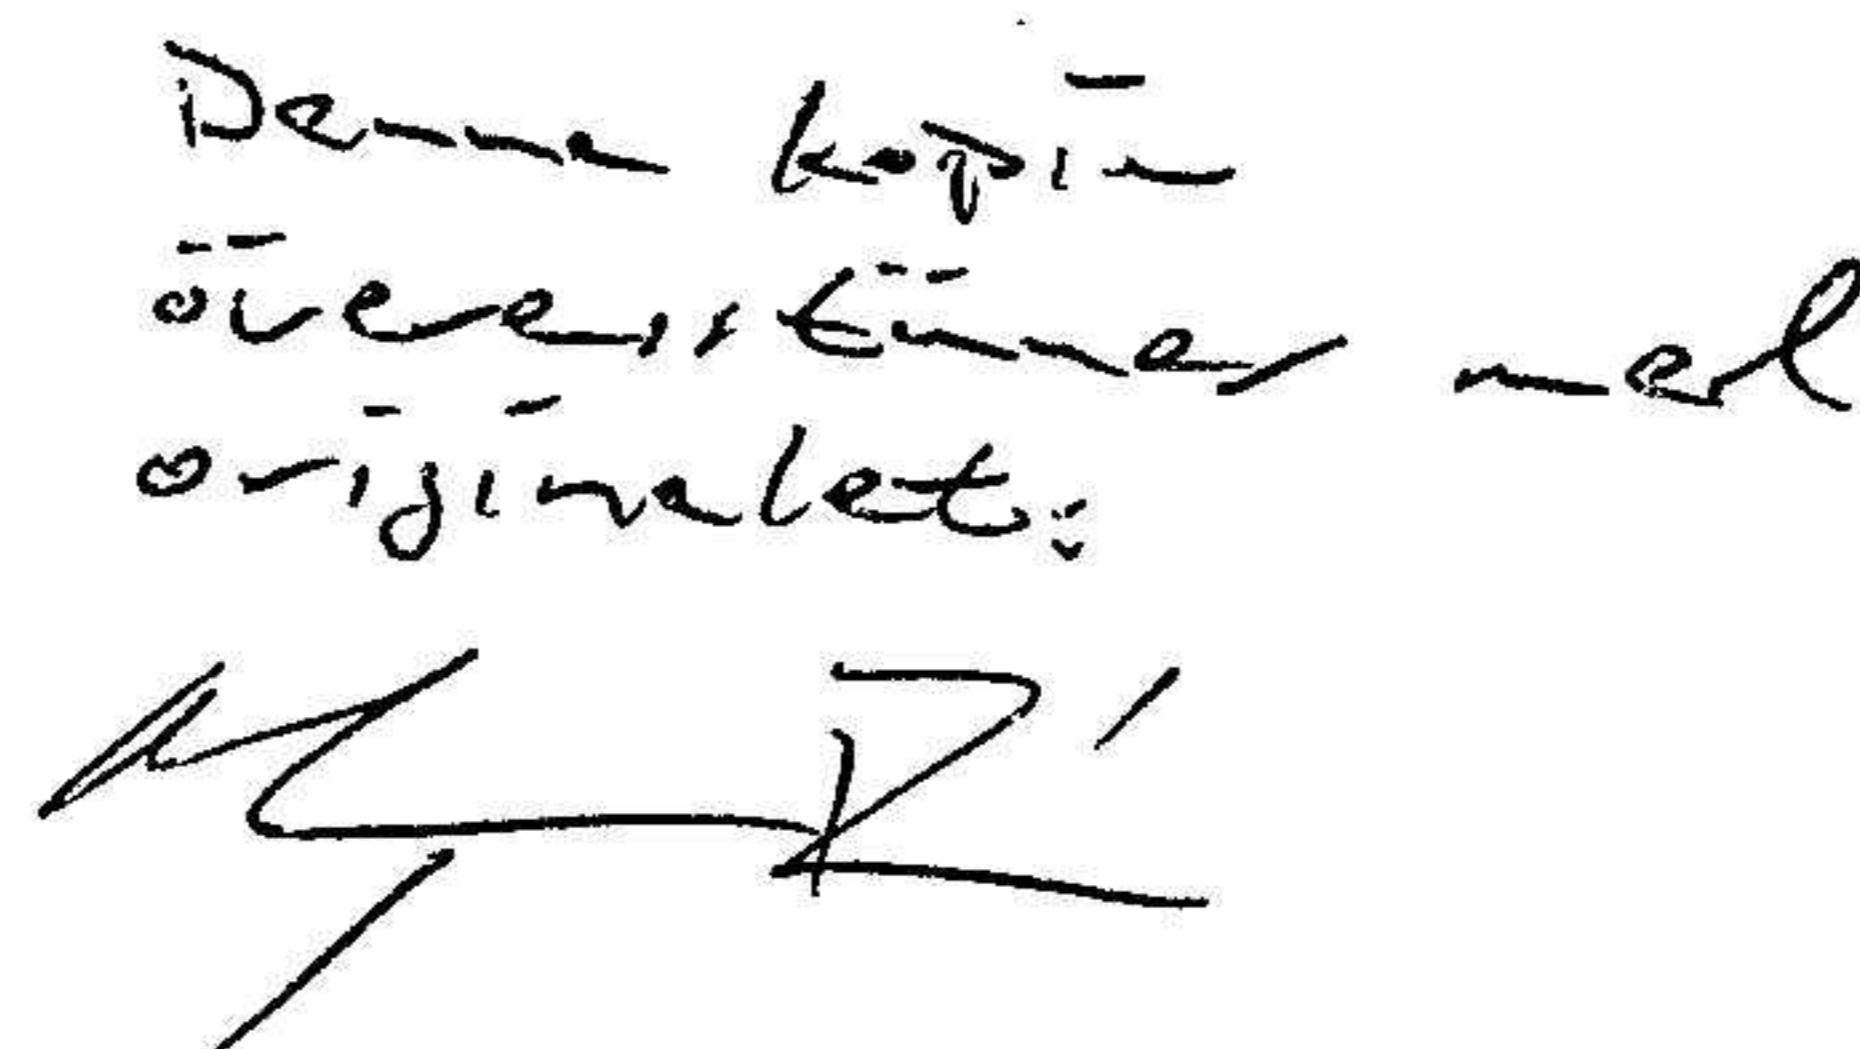 Denna kopia
överensstämmer med
originalet: